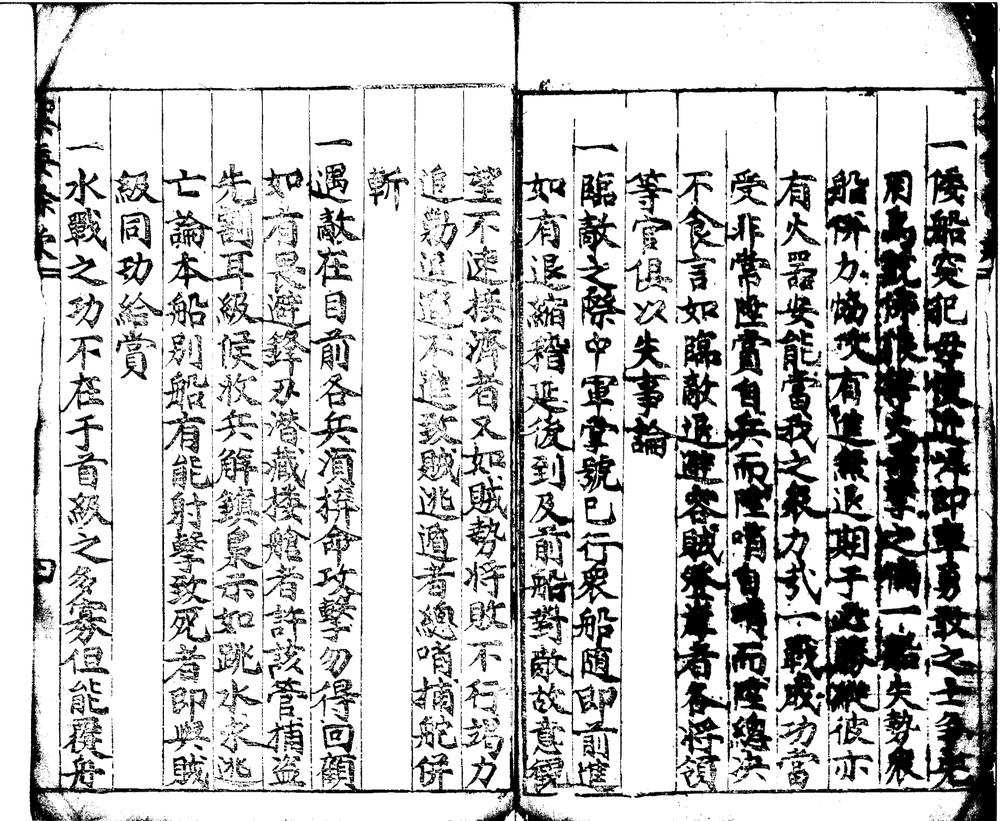 一倭船突犯毋使近岸即率勇敢之士爭先
用鳥銃佛狼機火器擊之倘一船失勢衆
船併力協攻有進無退期于必勝縱彼亦
有火器安能當我之衆力哉一戰成功當
受非常陞賞自兵而陞哨自哨而陞總決
不食言如臨敵退避容賊登岸者各將領
等官俱以失事論
一臨敵之際中軍掌號已行衆船隨即前進
如有退縮稽延後到及前船對敵故意
望不速接濟者又如賊勢將敗不行竭力
追勦逗遛不進致賊逃遁者總哨捕舵併
斬
一遇敵在目前各兵須拚命攻擊勿得回顧
如有畏避鋒刃潛藏樓艙者許該管捕盜
先割耳級候收兵解鎮梟示如跳水求逃
亡論本船别船有能射擊致死者即與賊
級同功給賞
一水戰之功不在于首級之多寡但能覆舟